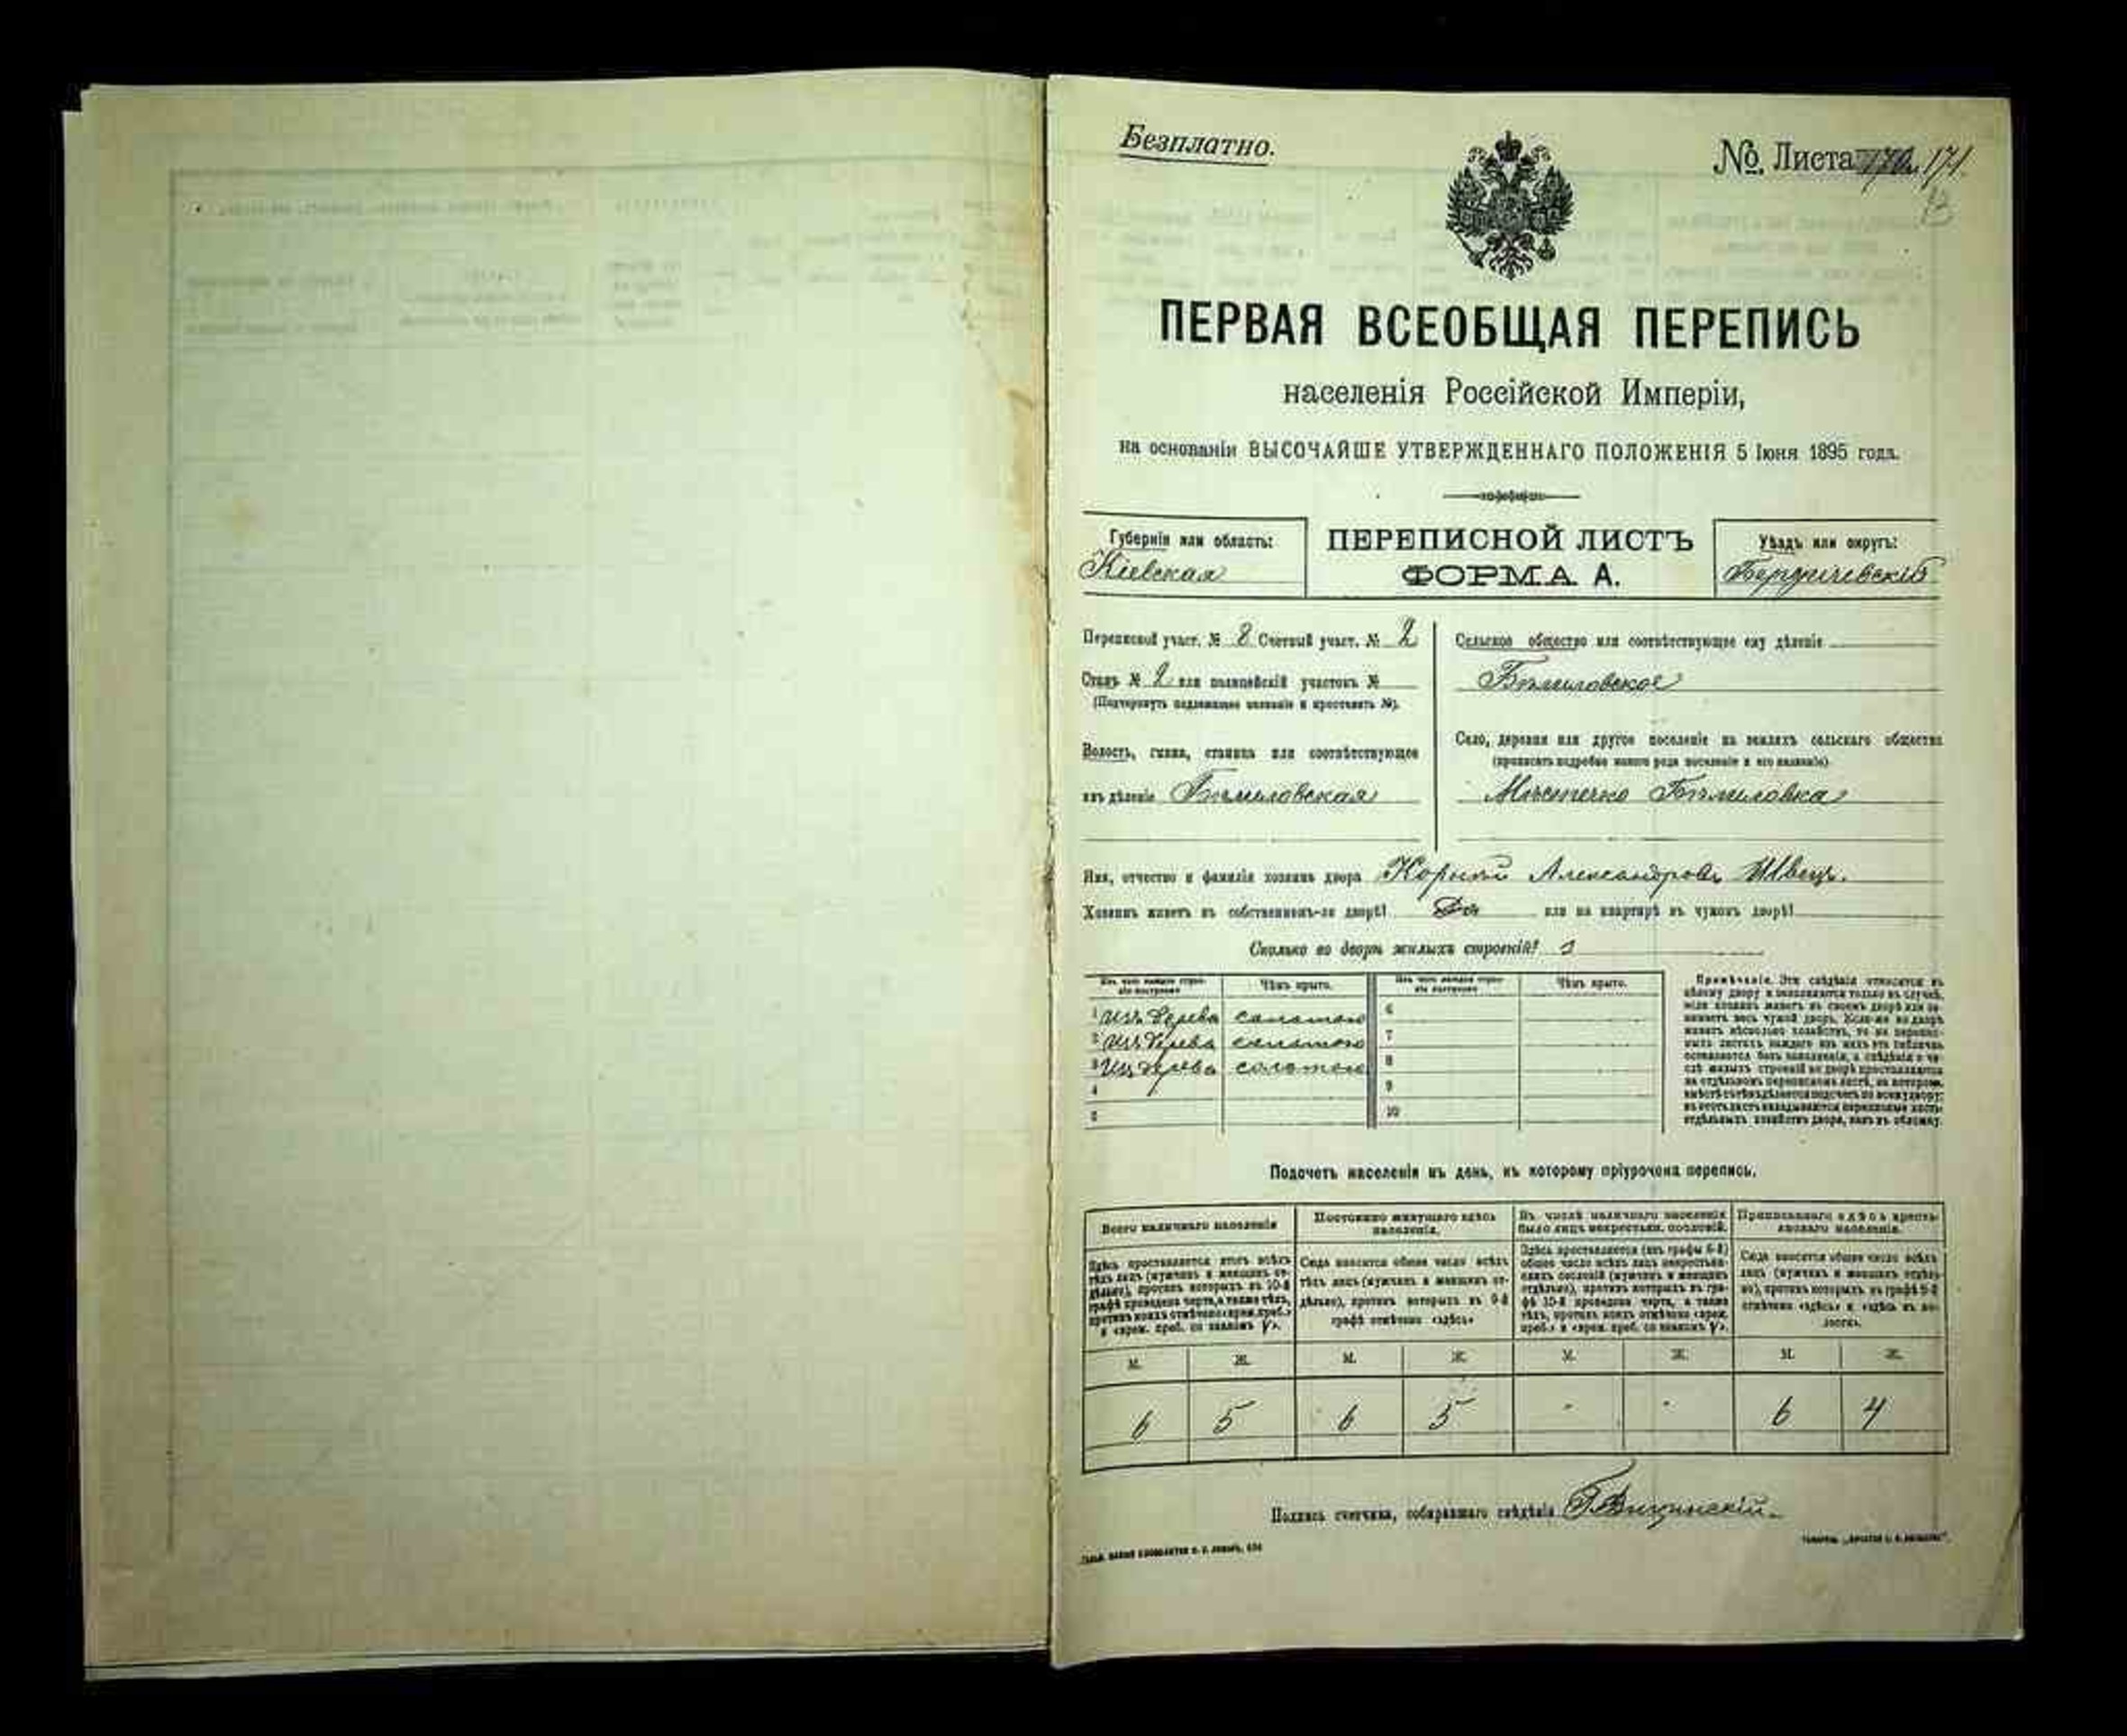 Безплатно.
№ Листа 171.
ПЕРВАЯ ВСЕОБЩАЯ ПЕРЕПИСЬ
населенія Россійской Имперіи,
на основаніи ВЫСОЧАЙШЕ УТВЕРЖДЕННАГО ПОЛОЖЕНІЯ 5 Іюня 1895 года.
Губернія или область:
Кіевская
ПЕРЕПИСНОЙ ЛИСТЪ
ФОРМА А.
Уѣздъ или округъ:
Бердичевскій
Переписной участ. № 8 Счетный участ. № 2
Станъ № 2 или полицейскій участокъ №
(Подчеркнуть подлежащее названіе и проставить №).
Волость, гмина, станица или соотвѣтствующее
имъ дѣленіе Бѣлиловская
Сельское общество или соотвѣтствующее ему дѣленіе
Бѣлиловское
Село, деревня или другое поселеніе на земляхъ сельскаго общества
(прописать подробно какого рода поселеніе и его названіе)
Мѣстечко Бѣлиловка
Имя, отчество и фамилія хозяина двора Корнѣй Александровъ Швецъ.
Хозяинъ живетъ въ собственномъ-ли дворѣ? Да или на квартирѣ въ чужомъ дворѣ?
Сколько во дворѣ жилыхъ строеній?
Изъ чего каждое строеніе построено
Чѣмъ крыто.
Изъ чего каждое строеніе построено
Чѣмъ крыто.
1 изъ дерева соломою
2 изъ дерева соломою
3 изъ дерева соломою
4
5
6
7
8
9
10
Примѣчаніе. Эти свѣдѣнія относятся къ
цѣлому двору и заполняются только въ случаѣ,
если хозяинъ живетъ въ своемъ дворѣ или за-
нимаетъ весь чужой дворъ. Если-же во дворѣ
живетъ нѣсколько хозяйствъ, то на перепис-
ныхъ листахъ каждаго изъ нихъ эта табличка
оставляется безъ заполненія, а свѣдѣнія о чи-
слѣ жилыхъ строеній во дворѣ проставляются
на отдѣльномъ переписномъ листѣ, на которомъ
вмѣстѣ съ тѣмъ дѣлается подсчетъ по всему двору;
въ этотъ листъ вкладываются переписные листы
отдѣльныхъ хозяйствъ двора, какъ въ обложку.
Подсчетъ населенія въ день, къ которому пріурочена перепись.
Всего наличнаго населенія
Постоянно живущаго здѣсь
населенія.
Въ числѣ наличнаго населенія
было лицъ некрестьян. сословій.
Приписаннаго здѣсь кресть-
янскаго населенія.
Здѣсь проставляется итогъ всѣхъ
тѣхъ лицъ (мужчинъ и женщинъ от-
дѣльно), противъ которыхъ въ 10-й
графѣ проведена черта, а также тѣхъ,
противъ коихъ отмѣчено «врем. преб.»
и «врем. преб. со знакомъ V».
Сюда вносится общее число всѣхъ
тѣхъ лицъ (мужчинъ и женщинъ от-
дѣльно), противъ которыхъ въ 9-й
графѣ отмѣчено «здѣсь»
Здѣсь проставляется (изъ графы 6-й)
общее число всѣхъ лицъ некрестьян-
скихъ сословій (мужчинъ и женщинъ
отдѣльно), противъ которыхъ въ гра-
фѣ 10-й проведена черта, а также
тѣхъ, противъ коихъ отмѣчено «врем.
преб.» и «врем. преб. со знакомъ V».
Сюда вносится общее число всѣхъ
лицъ (мужчинъ и женщинъ отдѣль-
но), противъ которыхъ въ графѣ 8-й
отмѣчено «здѣсь» и «здѣсь въ во-
лости».
М. Ж. М. Ж. М. Ж. М. Ж.
6 5 6 5 - - 6 4
Подпись счетчика, собиравшаго свѣдѣнія